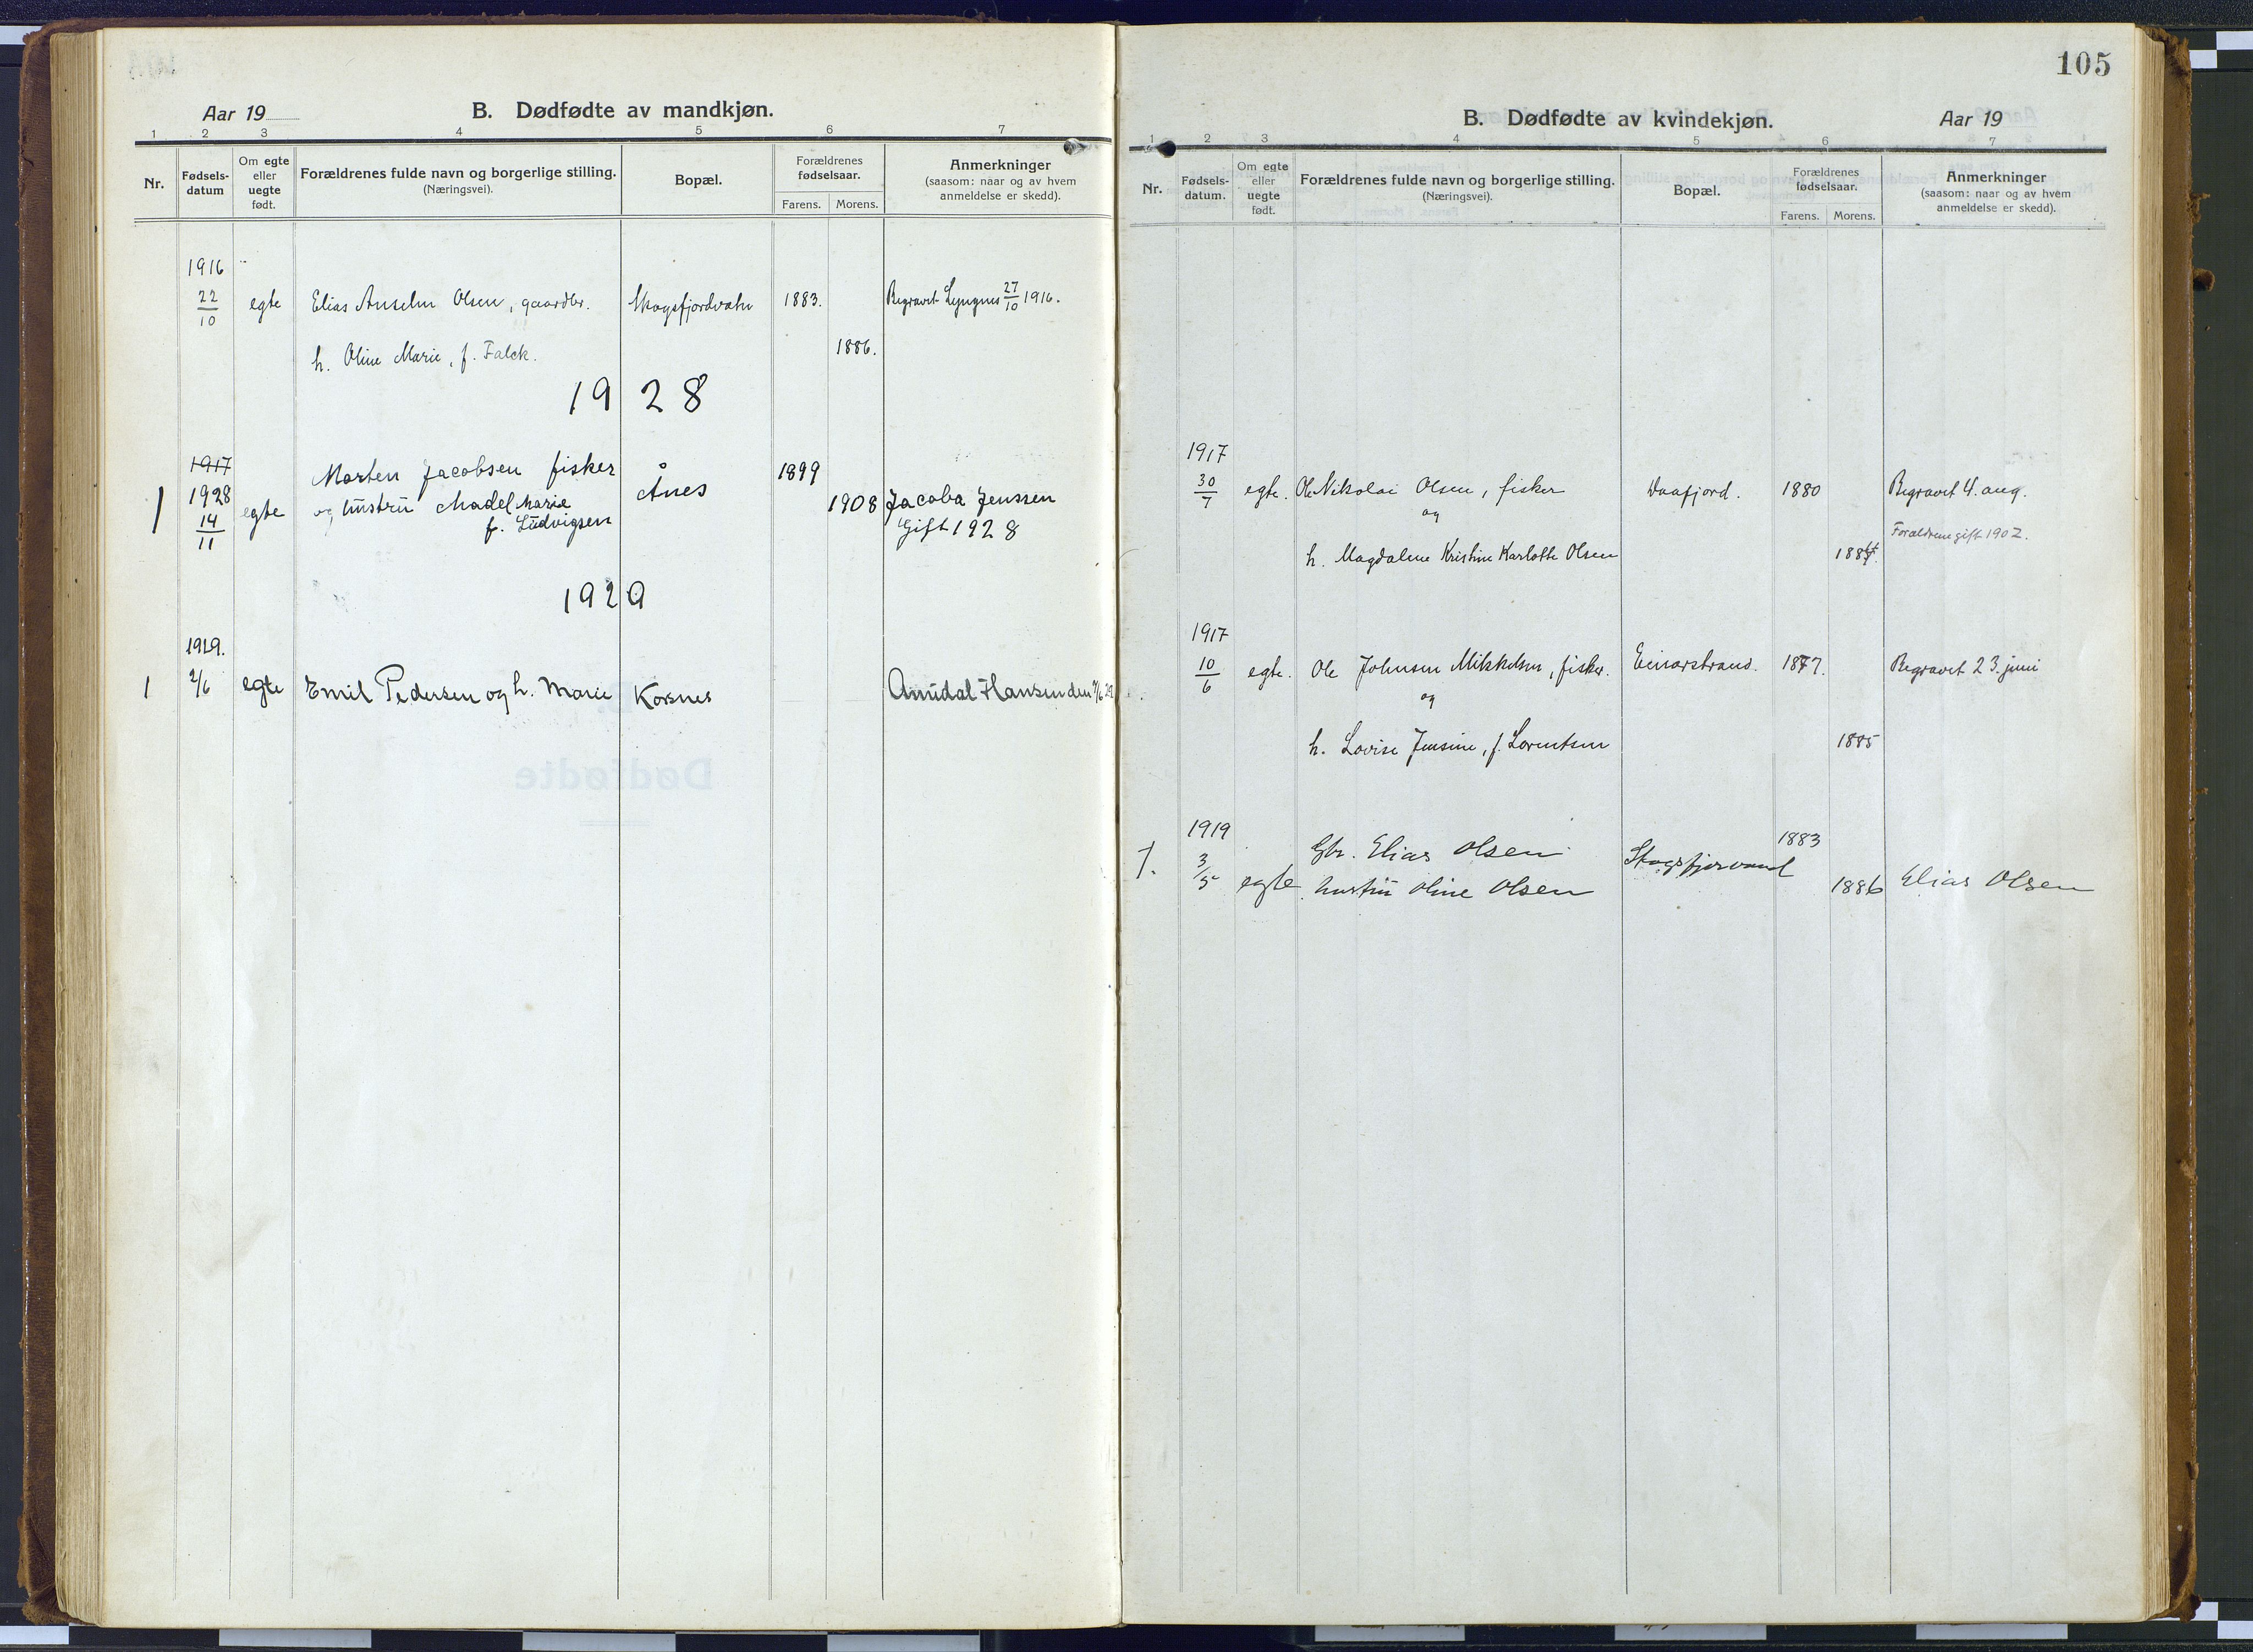 Aar 19
B. Dødfødte av mandkjøn.
1 2 3 4 5 6 7
Nr.
Fødsels-
datum
Om egte
eller
uegte
født.
Forældrenes fulde navn og borgerlige stilling.
(Næringsvei).
Bopæl.
Forældrenes
fødselsaar.
Farens. Morens.
Anmerkninger
(saasom: naar og av hvem
anmeldelse er skedd).
1916
22/10 egte Elias Anselm Olsen, gaardbr. Skogsfjordvatn 1883. Begravet Lyngnes 27/10 1916.
h. Oline Marie, f. Falck. 1886.
1928
1917
1 1928 14/11 egte Morten Jacobsen fisker Ånes 1899
og hustru Madel Marie 1908 Jacoba Jenssen
f. Ludvigsen Gift 1928
1929
1929.
1 2/6 egte Emil Pedersen og h. Marie Korsnes Amdal Hansen den 2/6 29
105
B. Dødfødte av kvindekjøn.
Aar 19
1 2 3 4 5 6 7
Nr.
Fødsels-
datum.
Om egte
eller
uegte
født.
Forældrenes fulde navn og borgerlige stilling.
(Næringsvei).
Bopæl.
Forældrenes
fødselsaar.
Farens. Morens.
Anmerkninger
(saasom: naar og av hvem
anmeldelse er skedd).
1917
30/7 egte. Ole Nikolai Olsen, fisker Daafjord. 1880 Begravet 4. aug.
og
Forældrene gift 1902.
h. Magdalene Kristine Karlotte Olsen
1917
10/6 egte. Ole Johnsen Mikkelsen, fisker. Einarstrand. 1877. Begravet 23. juni
og
h. Lovise Jensine, f. Lorentsen 1885
1919
1. 3/5 egte Gbr. Elias Olsen Skogsfjorvand 1883
hustru Oline Olsen 1886 Elias Olsen